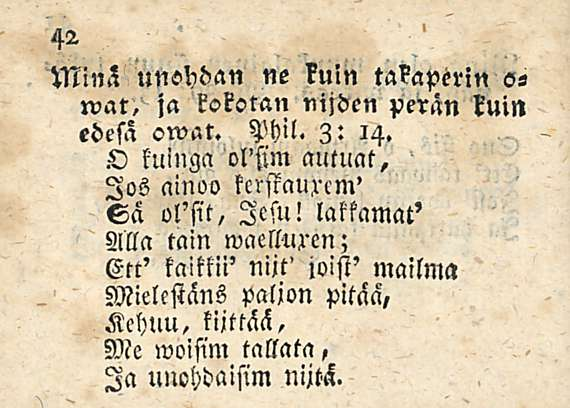 42
Minä unohdan ne kuin takaperin o⸗
wat, ja kokotan nijden perän kuin
edesä owat. Phil. 3: 14.
O kuinga ol'sim autuat,
Jos ainoo kerskauxem'
Sä ol'sit, Jesu! lakkamat'
Alla tain waelluxen;
Ett' kaikkii' niit' joist' mailma
Mielestäns paljon pitää,
Kehuu, kijttää,
Me woisim tallata,
Ja unohdaisim nijtä.